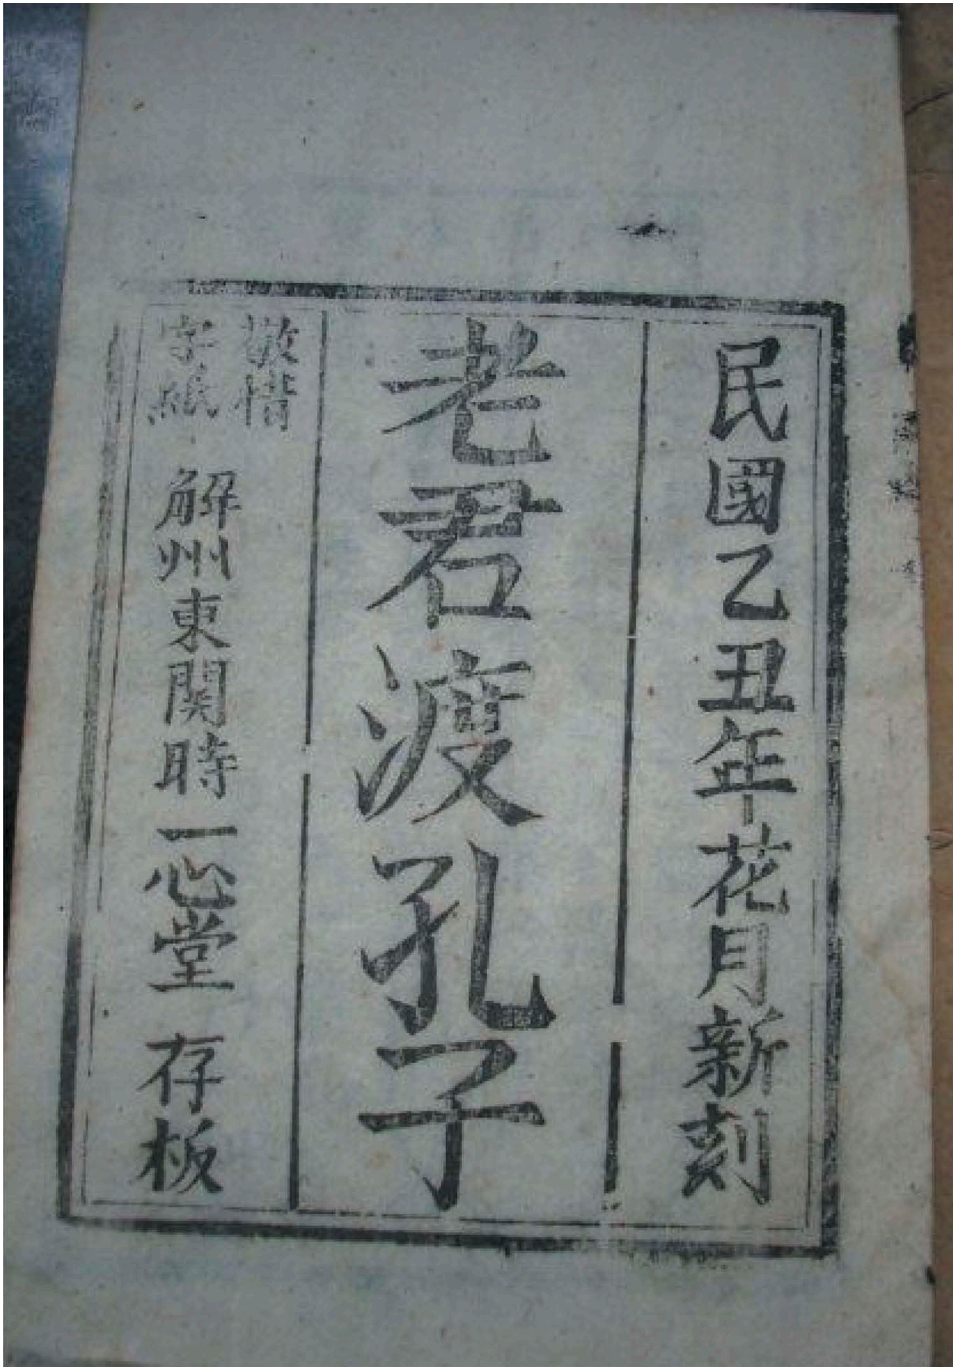 民國乙丑年花月新刻
老君渡孔子
敬惜
字紙
解州東関時一心堂 存板